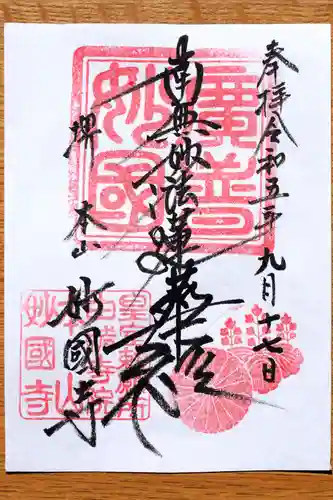 奉拝 令和五年九月十七日
南無妙法蓮華経
堺 本山
妙國寺
廣普
妙國
本山
妙國寺